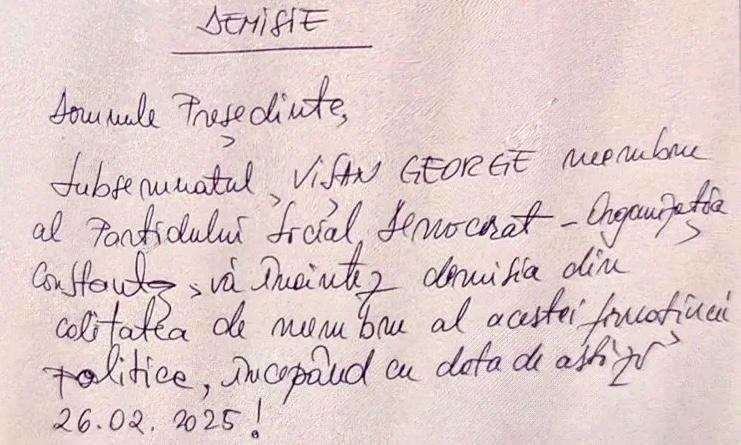 DEMISIE
Domnule Președinte,
Subsemnatul, VIȘAN GEORGE membru
al Partidului Social Democrat - Organizația
Constanța, vă înaintez demisia din
calitatea de membru al acestei formațiuni
politice, începând cu data de astăzi
26.02.2025!